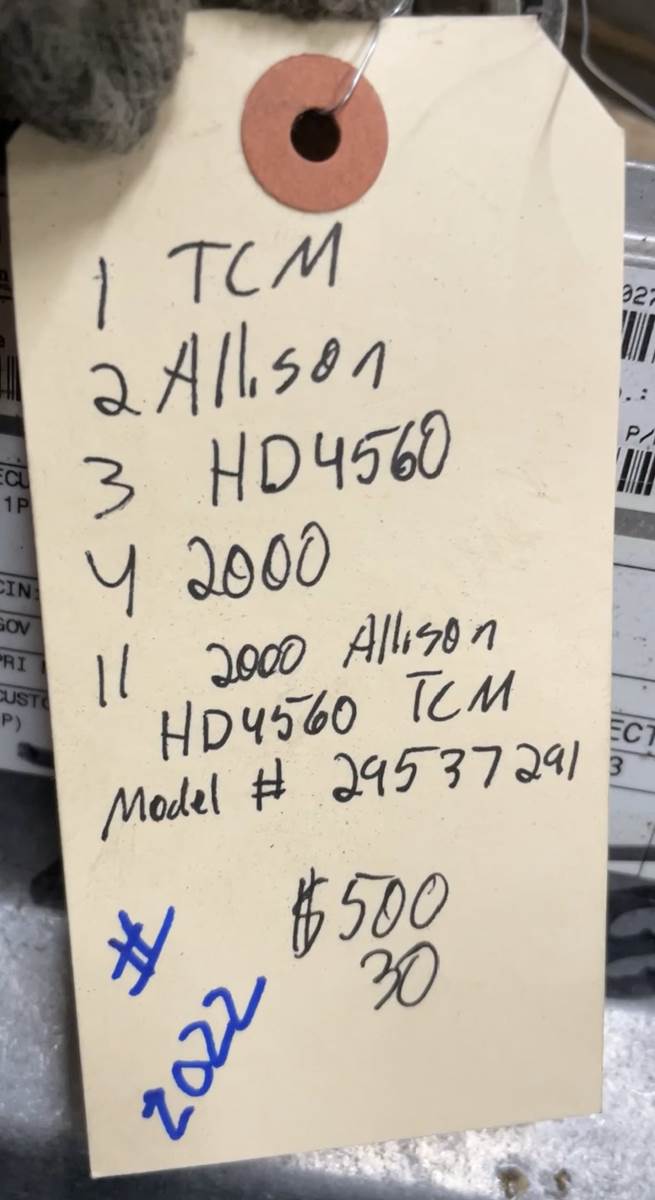 1 TCM
2 Allison
3 HD4560
4 2000
11 2000 Allison
HD4560 TCM
Model # 29537291
$500
30
#
2022
027
P/
ECU
1P
CIN:
GOV
PRI
CUSTO
P)
ECT
3